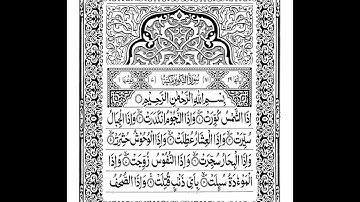 سُوْرَةُ التَّكْوِيْرِ مَكِّيَّةٌ
بِسْمِ اللهِ الرَّحْمٰنِ الرَّحِيْمِ ۝
اِذَا الشَّمْسُ كُوِّرَتْ ۝ وَاِذَا النُّجُوْمُ انْكَدَرَتْ ۝ وَاِذَا الْجِبَالُ
سُيِّرَتْ ۝ وَاِذَا الْعِشَارُ عُطِّلَتْ ۝ وَاِذَا الْوُحُوْشُ حُشِرَتْ ۝
وَاِذَا الْبِحَارُ سُجِّرَتْ ۝ وَاِذَا النُّفُوْسُ زُوِّجَتْ ۝ وَاِذَا
الْمَوْءٗدَةُ سُئِلَتْ ۝ بِاَيِّ ذَنْۢبٍ قُتِلَتْ ۝ وَاِذَا الصُّحُفُ